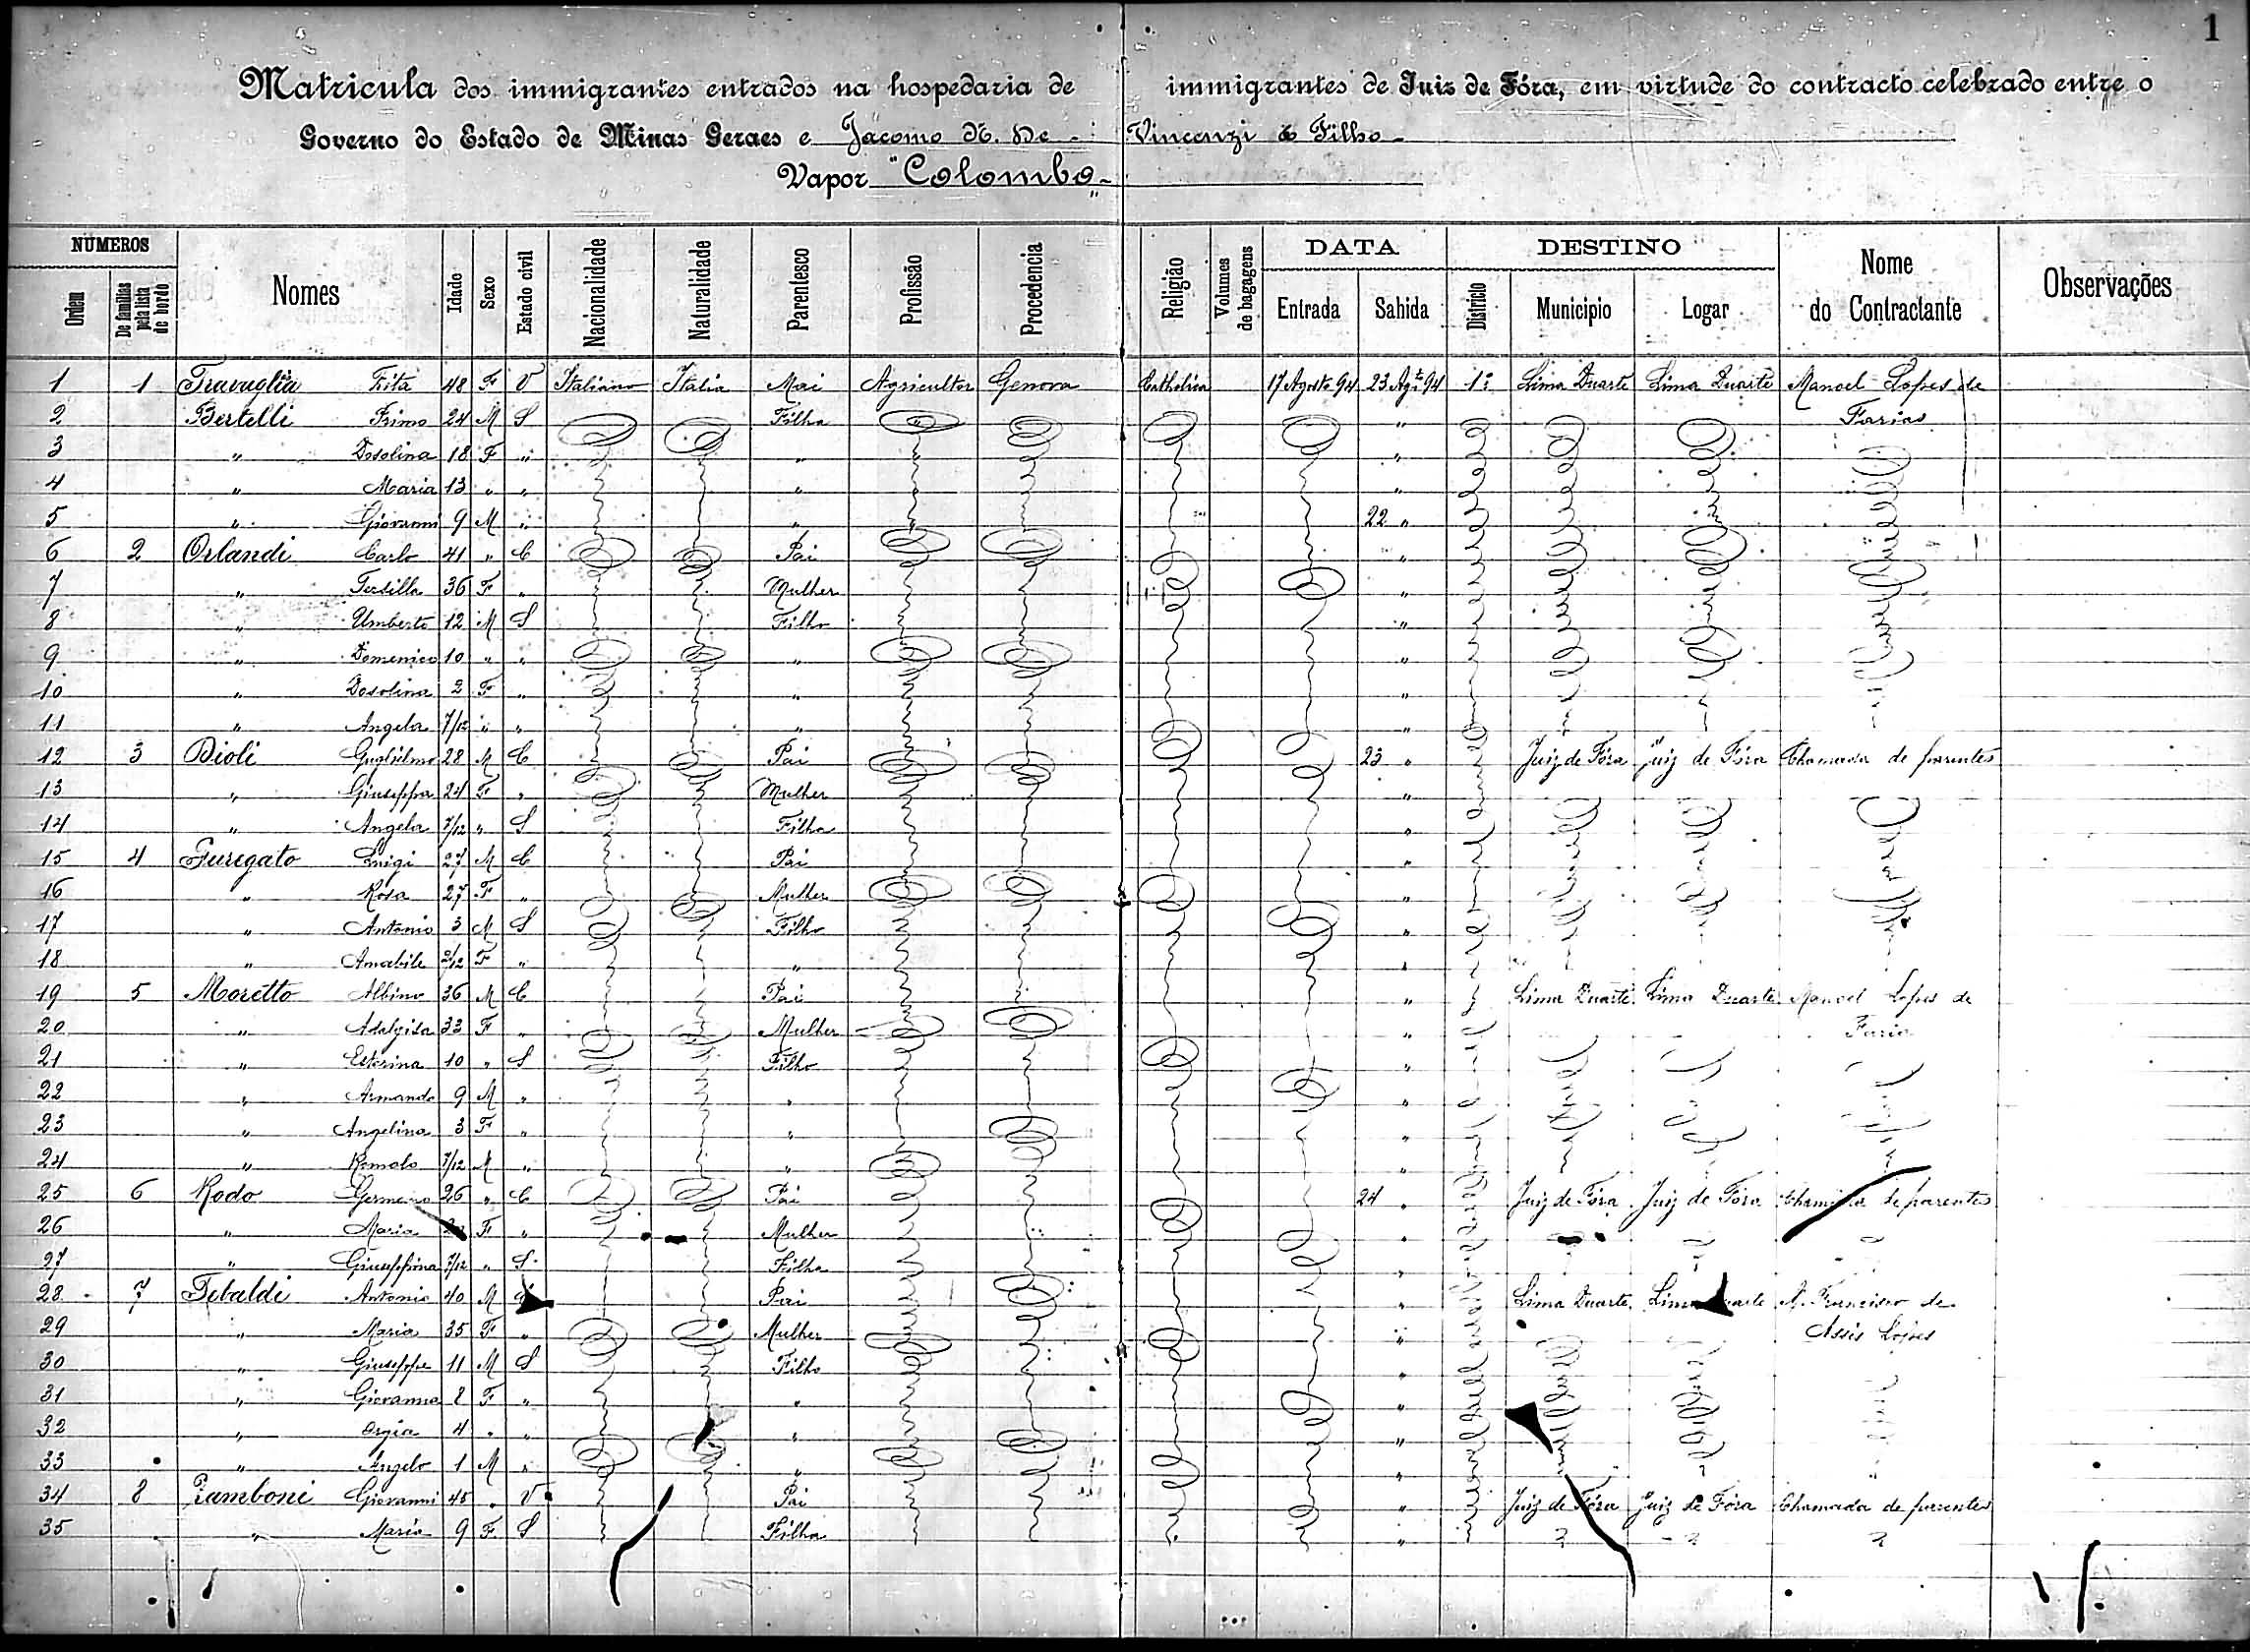 1
Matricula dos immigrantes entrados na hospedaria de immigrantes de Juiz de Fóra, em virtude do contracto celebrado entre o
Governo do Estado de Minas Geraes e Jacomo N. de Vincenzi & Filho
Vapor "Colombo"
NUMEROS Nomes Idade Sexo Estado civil Nacionalidade Naturalidade Parentesco Profissão Procedencia Religião Volumes de bagagens DATA DESTINO Nome do Contractante Observações
Ordem De familias pela lista de bordo Entrada Sahida Districto Municipio Logar
1 1 Travaglia Rita 48 F V Italiano Italia Mai Agricultor Genova Catholica 17 Agosto 94 23 Agto 94 1º Lima Duarte Lima Duarte Manoel Lopes de
2 Bertelli Primo 24 M S Filho " " Farias
3 " Dosolina 18 F " " " "
4 " Maria 13 " " " " "
5 " Giovanni 9 M " " " 22 "
6 2 Orlandi Carlo 41 " C Pai "
7 " Tersilla 36 F " Mulher "
8 " Umberto 12 M S Filho "
9 " Domenico 10 " " " "
10 " Dosolina 2 F " " "
11 " Angela 7/12 " " " "
12 3 Bioli Guglielmo 28 M C Pai 23 " Juiz de Fóra Juiz de Fóra Chamada de parentes
13 " Giuseppa 24 F " Mulher "
14 " Angela 7/12 " S Filha "
15 4 Furegato Luigi 27 M C Pai "
16 " Rosa 27 F " Mulher "
17 " Antonio 3 M S Filho "
18 " Amabile 2/12 F " " "
19 5 Moretto Albino 36 M C Pai " Lima Duarte Lima Duarte Manoel Lopes de
20 " Adalgisa 33 F " Mulher " Faria
21 " Esterina 10 " S Filho "
22 " Armando 9 M " " "
23 " Angelina 3 F " " "
24 " Romolo 7/12 M " " "
25 6 Rodo Germano 26 " C Pai 24 " Juiz de Fóra Juiz de Fóra Chamada de parentes
26 " Maria F " Mulher "
27 " Giuseppina 7/12 " S Filha "
28 7 Tebaldi Antonio 40 M Pai " Lima Duarte Lima Duarte Francisco de
29 " Maria 35 F " Mulher " Assis Lopes
30 " Giuseppe 11 M S Filho "
31 " Giovanna 8 F " " "
32 " Orgia 4 " " " "
33 " Angelo 1 M " " "
34 8 Piamboni Giovanni 45 " V Pai " Juiz de Fóra Juiz de Fóra Chamada de parentes
35 " Maria 9 F S Filha "